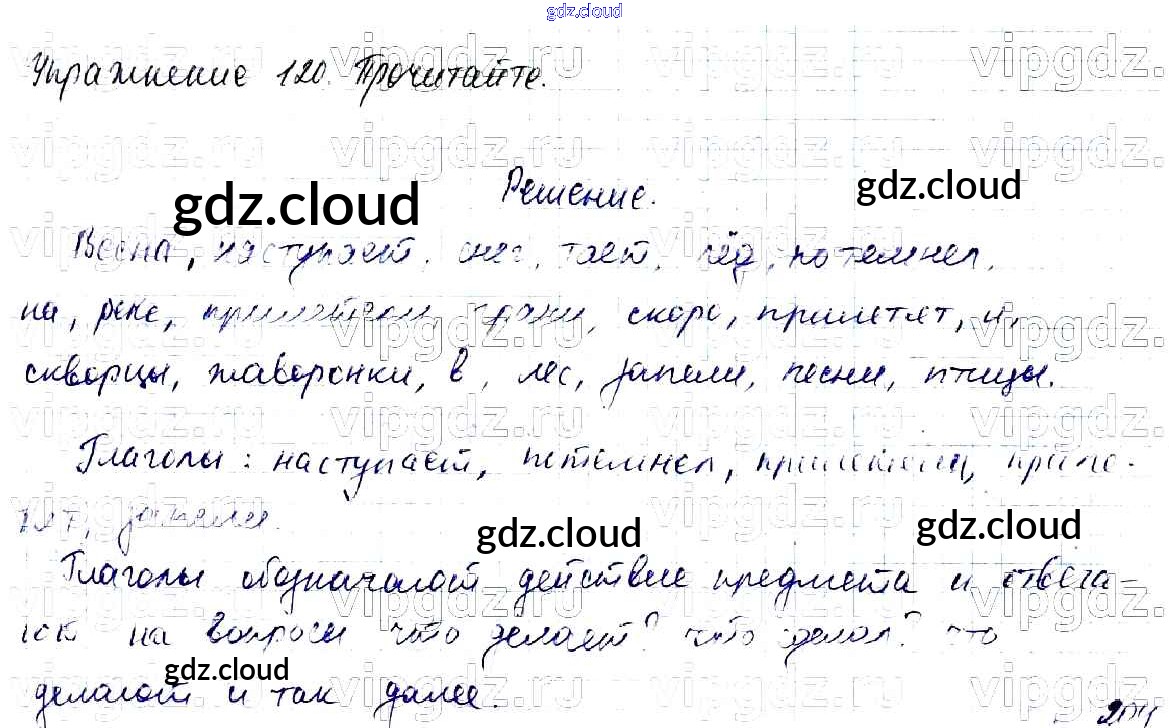 gdz.cloud
Упражнение 120. Прочитайте.
Решение.
gdz.cloud
gdz.cloud
Весна, наступает, снег, тает, лёд, потемнел,
на, реке, прилетели, грачи, скоро, прилетят, и,
скворцы, жаворонки, в, лес, запели, песни, птицы.
Глаголы: наступает, потемнел, прилетели, приле-
тят, запели.
gdz.cloud
gdz.cloud
Глаголы обозначают действие предмета и отвеча
ют на вопросы что делает? что делал? что
gdz.cloud
делают и так далее.
vipgdz.ru